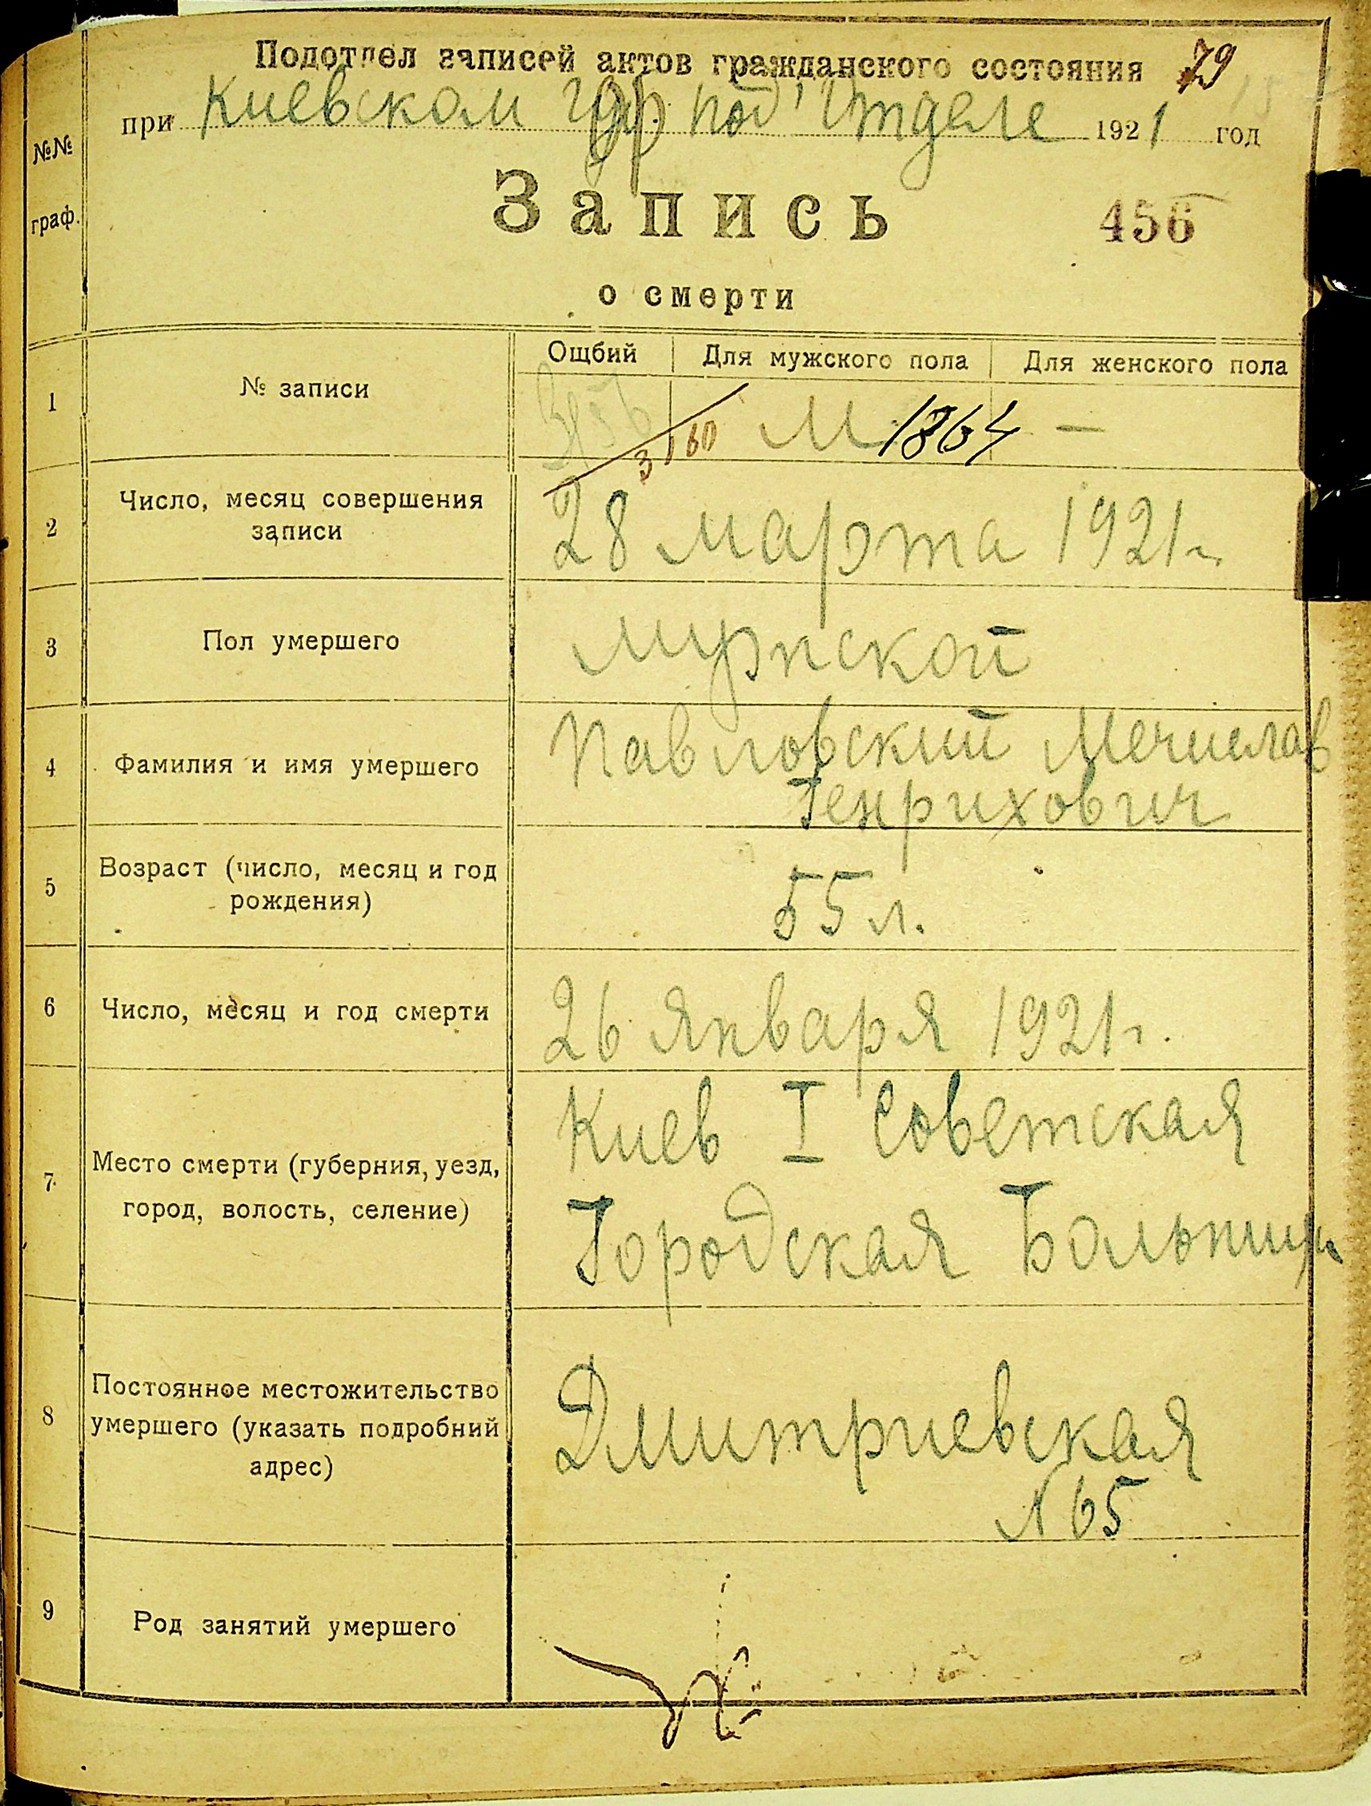 Подотдел записей актов гражданского состояния 79
при Киевском Губ. под'Отделе 1921 год
№№
граф.
Запись
456
о смерти
Ощбий Для мужского пола Для женского пола
1 № записи 3160 М 1864 —
2 Число, месяц совершения
записи
28 марта 1921 г.
3 Пол умершего мужской
4 Фамилия и имя умершего Павловский Мечислав
Генрихович
5 Возраст (число, месяц и год
рождения)
55 л.
6 Число, месяц и год смерти 26 Января 1921 г.
Киев I Советская
7 Место смерти (губерния, уезд,
город, волость, селение)
Городская Больница
8 Постоянное местожительство
умершего (указать подробний
адрес)
Дмитриевская
№ 65
9 Род занятий умершего